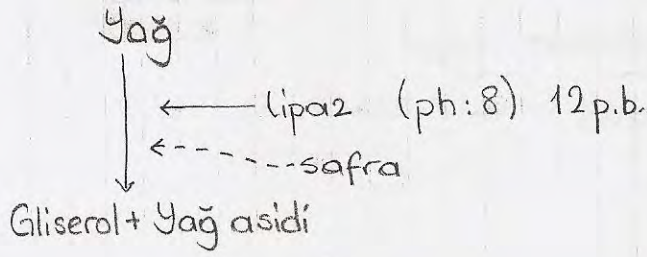 Yağ
lipaz (ph:8) 12p.b.
safra
Gliserol+ Yağ asidi